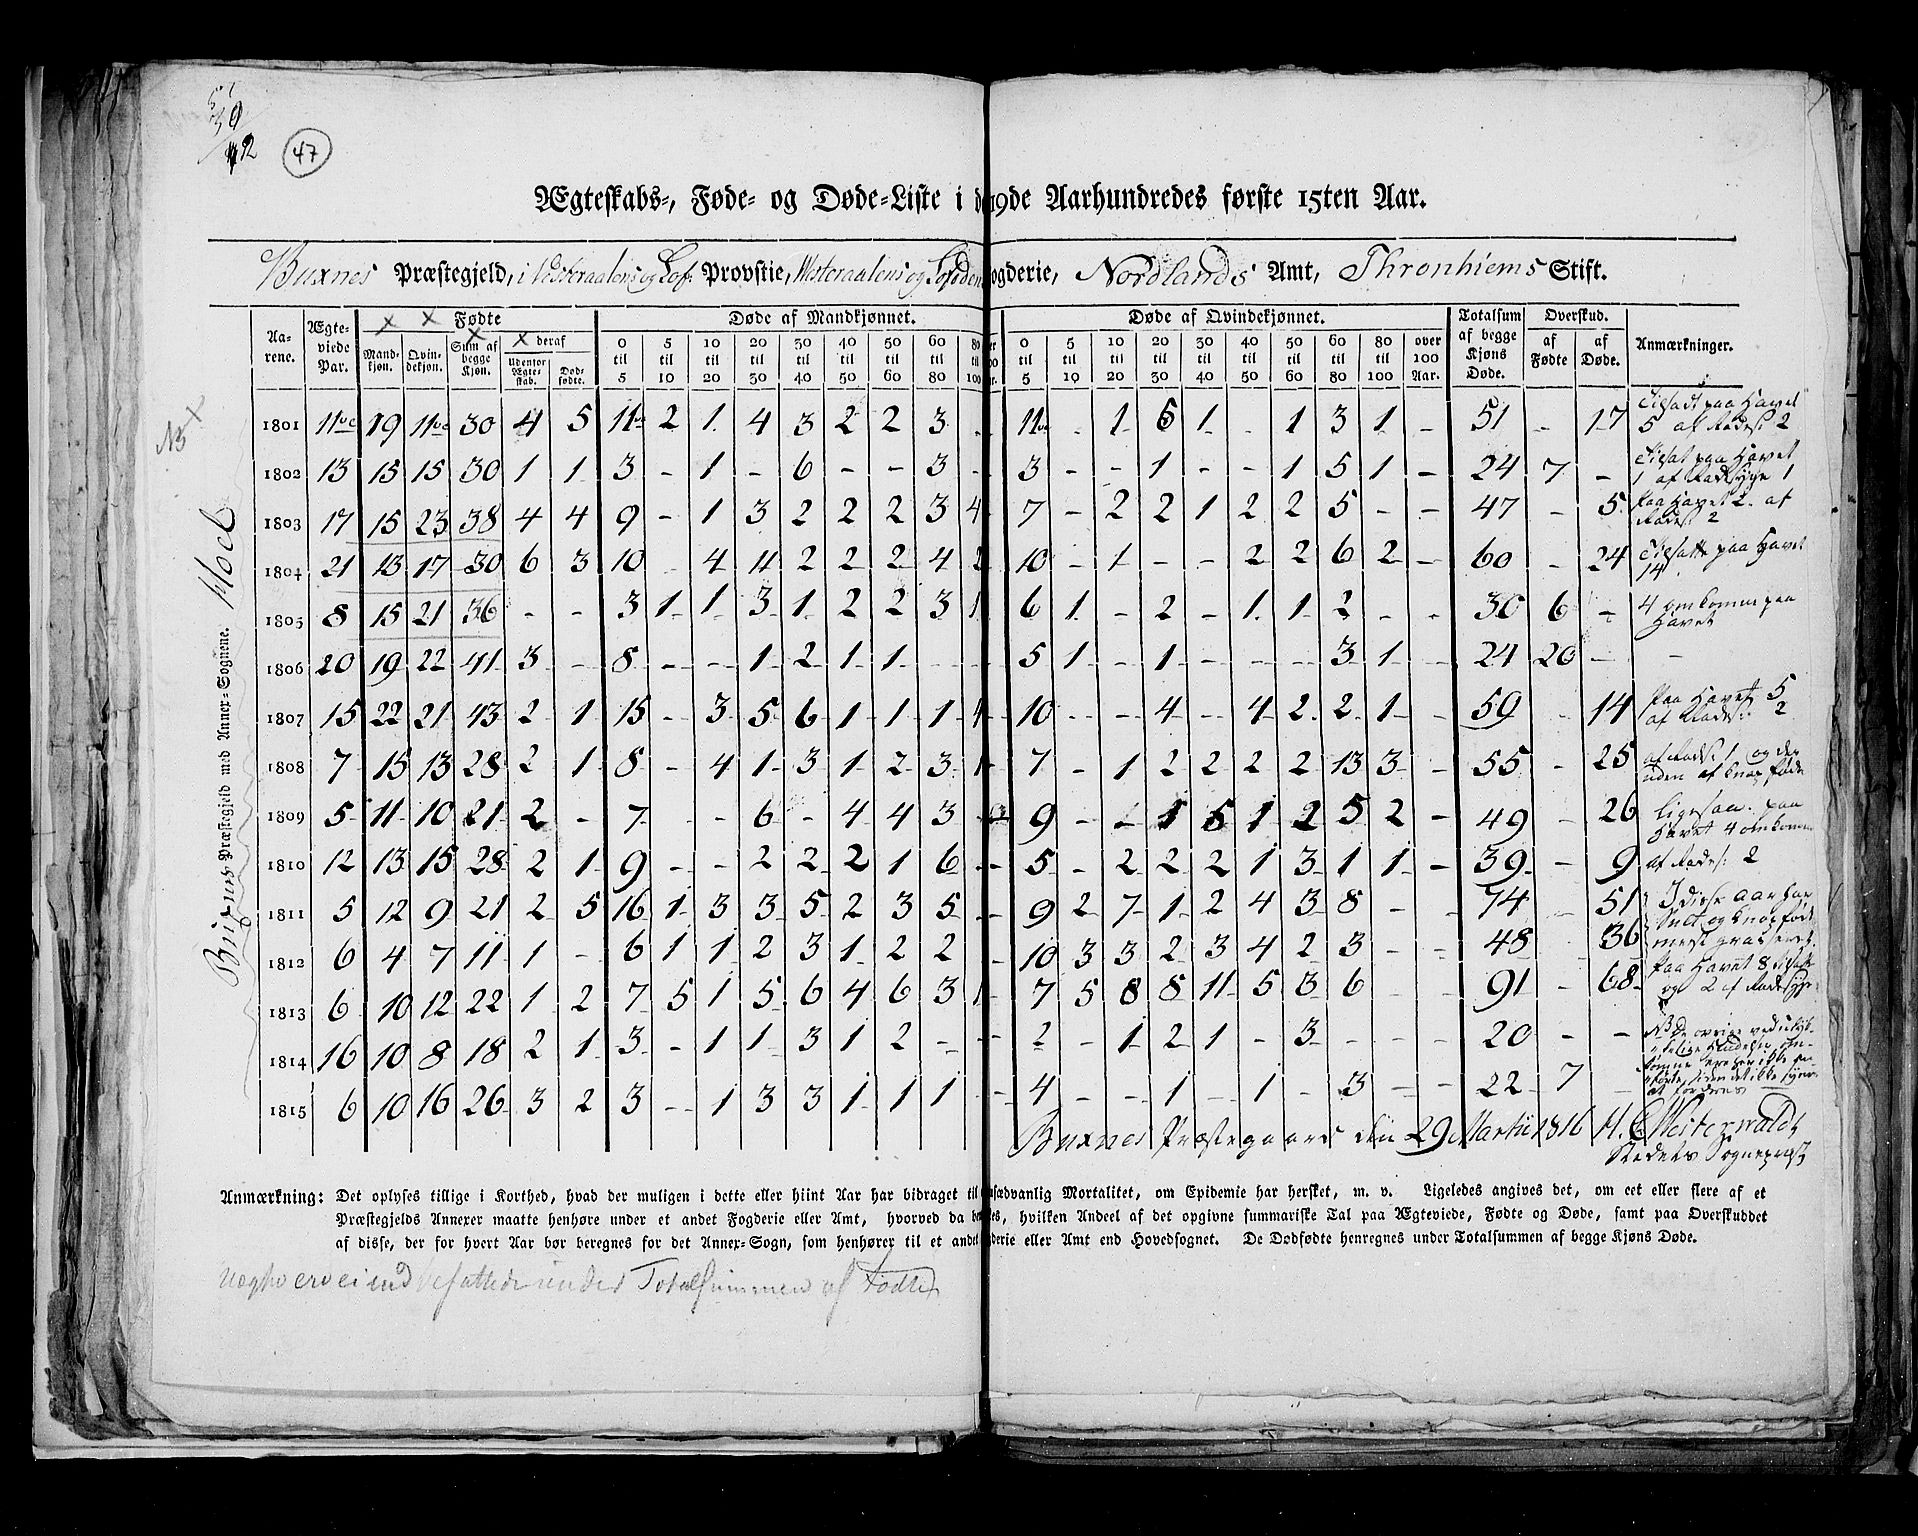 47
Ægteskabs-, Føde- og Døde-Liste i d 19de Aarhundredes første 15ten Aar.
Buxnes Præstegjeld, i Vesteraalens og Lof. Provstie, Westeraalens og Lofodens ogderie, Nordlands Amt, Thronhiems Stift.
Aarene. Ægteviede Par. Fødte Døde af Mandkjønnet. Døde af Qvindekjønnet. Totalsum af begge Kjøns Døde. Overskud. Anmærkninger.
Mandkjøn. Qvindekjøn. Sum af begge Kjøn. deraf udenfor Ægtestab. Dødfødte. 0 til 5 5 til 10 10 til 20 20 til 30 30 til 40 40 til 50 50 til 60 60 til 80 80 100 0 til 5 5 til 10 10 til 20 20 til 30 30 til 40 40 til 50 50 til 60 60 til 80 80 til 100 over 100 Aar. af Fødte af Døde.
1801 11ve 19 11ve 30 4 5 11ve 2 1 4 3 2 2 3 - 11ve - 1 6 1 - 1 3 1 - 51 - 17 Tilsadt paa Havet 5 af Rades: 2
1802 13 15 15 30 1 1 3 - 1 - 6 - - 3 - 3 - - 1 - - 1 5 1 - 24 7 - Tilsat paa Havet 1 af Radesyge 1
1803 17 15 23 38 4 4 9 - 1 3 2 2 2 3 4 7 - 2 2 1 2 2 5 - - 47 - 5 Paa Havet 2. af Rades: 2
1804 21 13 17 30 6 3 10 4 11 2 2 2 4 2 10 - 1 - - 2 2 6 2 - 60 - 24 Tilsatte paa Havet 14
1805 8 15 21 36 - - 3 1 1 3 1 2 2 3 1 6 1 - 2 - 1 1 2 - - 30 6 - 4 omkomne paa Havet
1806 20 19 22 41 3 - 8 - - 1 2 1 1 - - 5 1 - 1 - - - 3 1 24 20 - -
1807 15 22 21 43 2 1 15 - 3 5 6 1 1 1 4 10 - - 4 - 4 2 2 1 - 59 - 14 Paa Havet 5 af Rades: 2
1808 7 15 13 28 2 1 8 - 4 1 3 1 2 3 1 7 - 1 2 2 2 2 13 3 - 55 - 25 af Rades: 1 og den uden af knap Føde
1809 5 11 10 21 2 - 7 - - 6 - 4 4 3 9 - - 1 5 1 2 5 2 - 49 - 26 ligesaa. paa Havet 4 omkomne
1810 12 13 15 28 2 1 9 - - 2 2 2 1 6 - 5 - 2 2 2 1 3 1 1 - 39 - 9 af Rades: 2
1811 5 12 9 21 2 5 16 1 3 3 5 2 3 5 - 9 2 7 1 2 4 3 8 - - 74 - 51 I disse Aar har Sult og knap føde
1812 6 4 7 11 1 - 6 1 1 2 3 1 2 2 - 10 3 3 2 3 4 2 3 - - 48 - 36 mest grasseret.
1813 6 10 12 22 1 2 7 5 1 5 6 4 6 3 1 7 5 8 8 11 5 3 6 - - 91 - 68 Paa Havet 8 tilsatte og 2 af Radesyge
1814 16 10 8 18 2 1 3 - 1 1 3 1 2 - - 2 - 1 2 1 - 3 - - - 20 - - NB De øvrige ved ulyk-
1815 6 10 16 26 3 2 3 - 1 3 3 1 1 1 - 4 - - 1 - 1 - 3 - - 22 7 -
Buxnes Præstegaard den 29 Martii 1816 H. C. Westerwaldt
Stedets Sognepræst
NB
Buxnes Præstegjeld med Annex-Sognene. Hoel
Anmærkning: Det oplyses tillige i Korthed, hvad der muligen i dette eller hiint Aar har bidraget til sædvanlig Mortalitet, om Epidemie har hersket, m. v. Ligeledes angives det, om eet eller flere af et
Præstegjelds Annexer maatte henhøre under et andet Fogderie eller Amt, hvorved da be es, hvilken Andeel af det opgivne summariske Tal paa Ægteviede, Fødte og Døde, samt paa Overskuddet
af disse, der for hvert Aar bør beregnes for det Annex-Sogn, som henhører til et andet derie eller Amt end Hovedsognet. De Dødfødte henregnes under Totalsummen af begge Kjøns Døde.
indbefattede under Totalsummen af Fødte